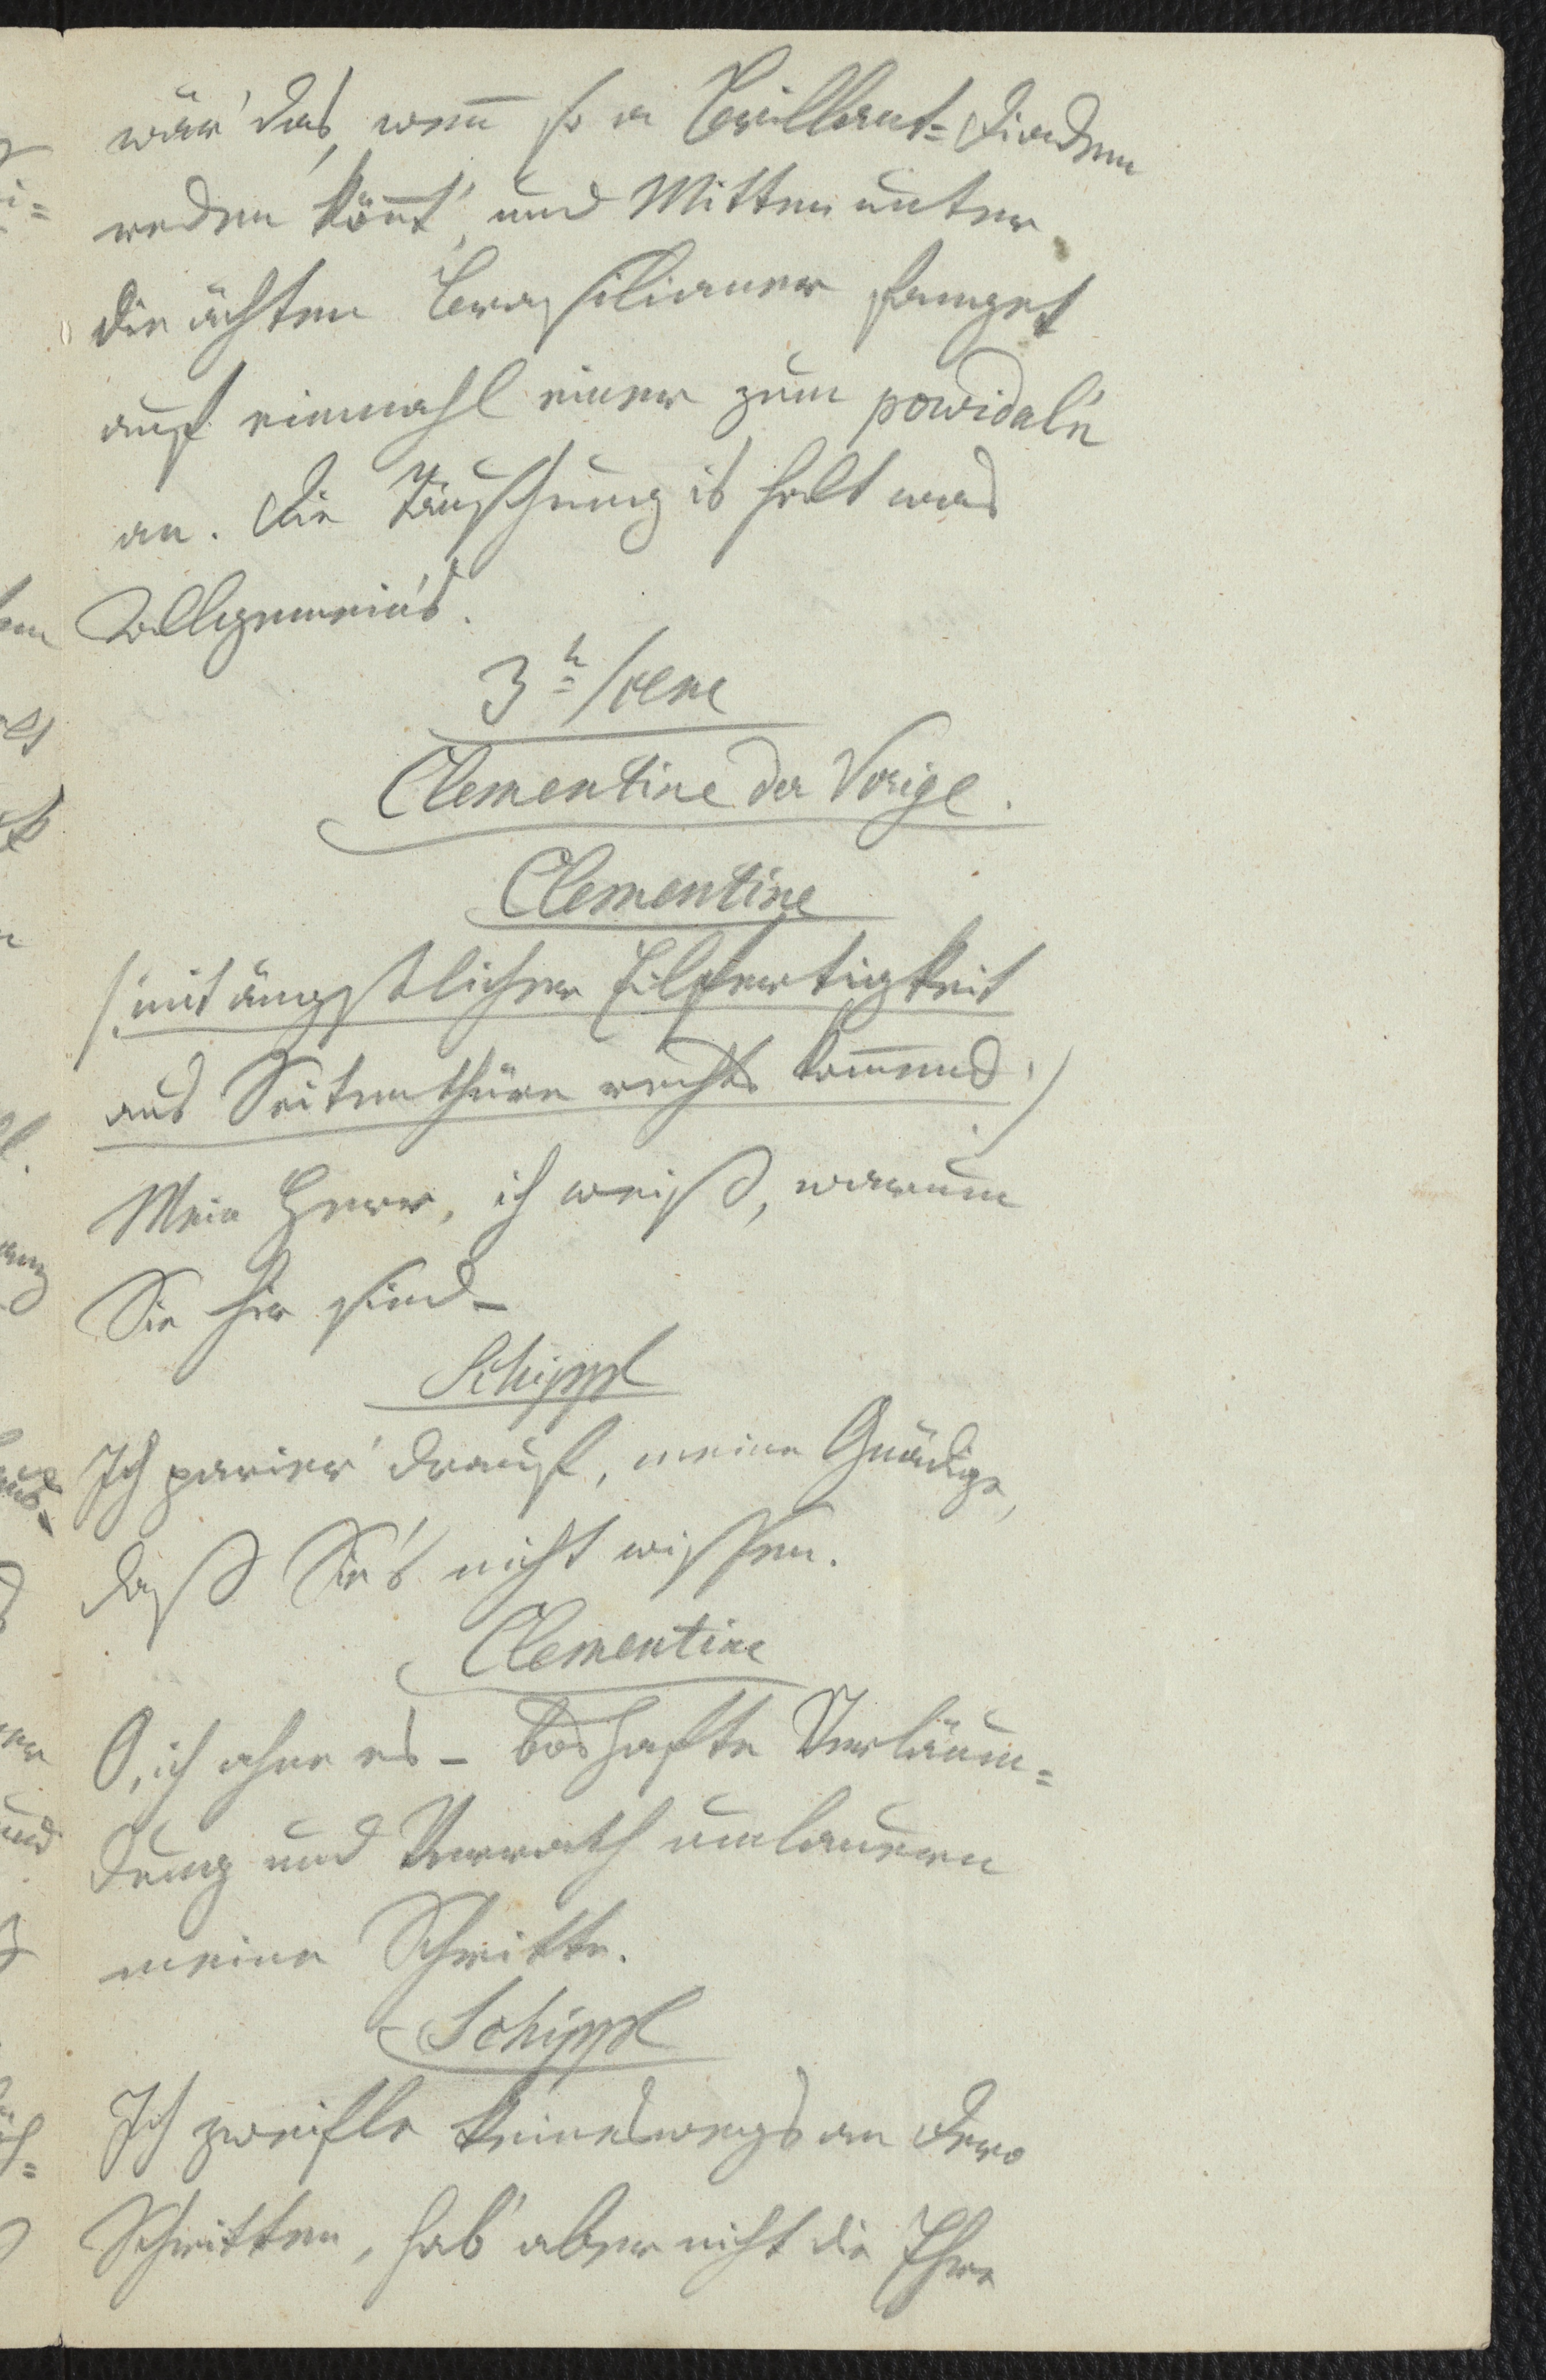 wär' das, wenn so a Brillant=Diadem
reden könnt', und Mitten unter
die ächten Brasilianer fanget
auf einmahl einer zum powidal'n
an. Die Täuschung is halt was
Allgemein's.
3te Scene
Clementine der Vorige.
Clementine
(:mit ängstlicher Eilfertigkeit
aus Seitenthüre rechts kommend:)
Mein Herr, ich weiß, warum
Sie hier sind –
Schippl
Ich parier' drauf, meine Gnädige,
daß Sie's nicht wissen.
Clementine
O, ich ahne es – boshafte Verläum=
dung und Verrath umlauern
meine Schritte.
Schippl
Ich zweifle keineswegs an Dero
Schritten, hab' aber nicht die Ehre